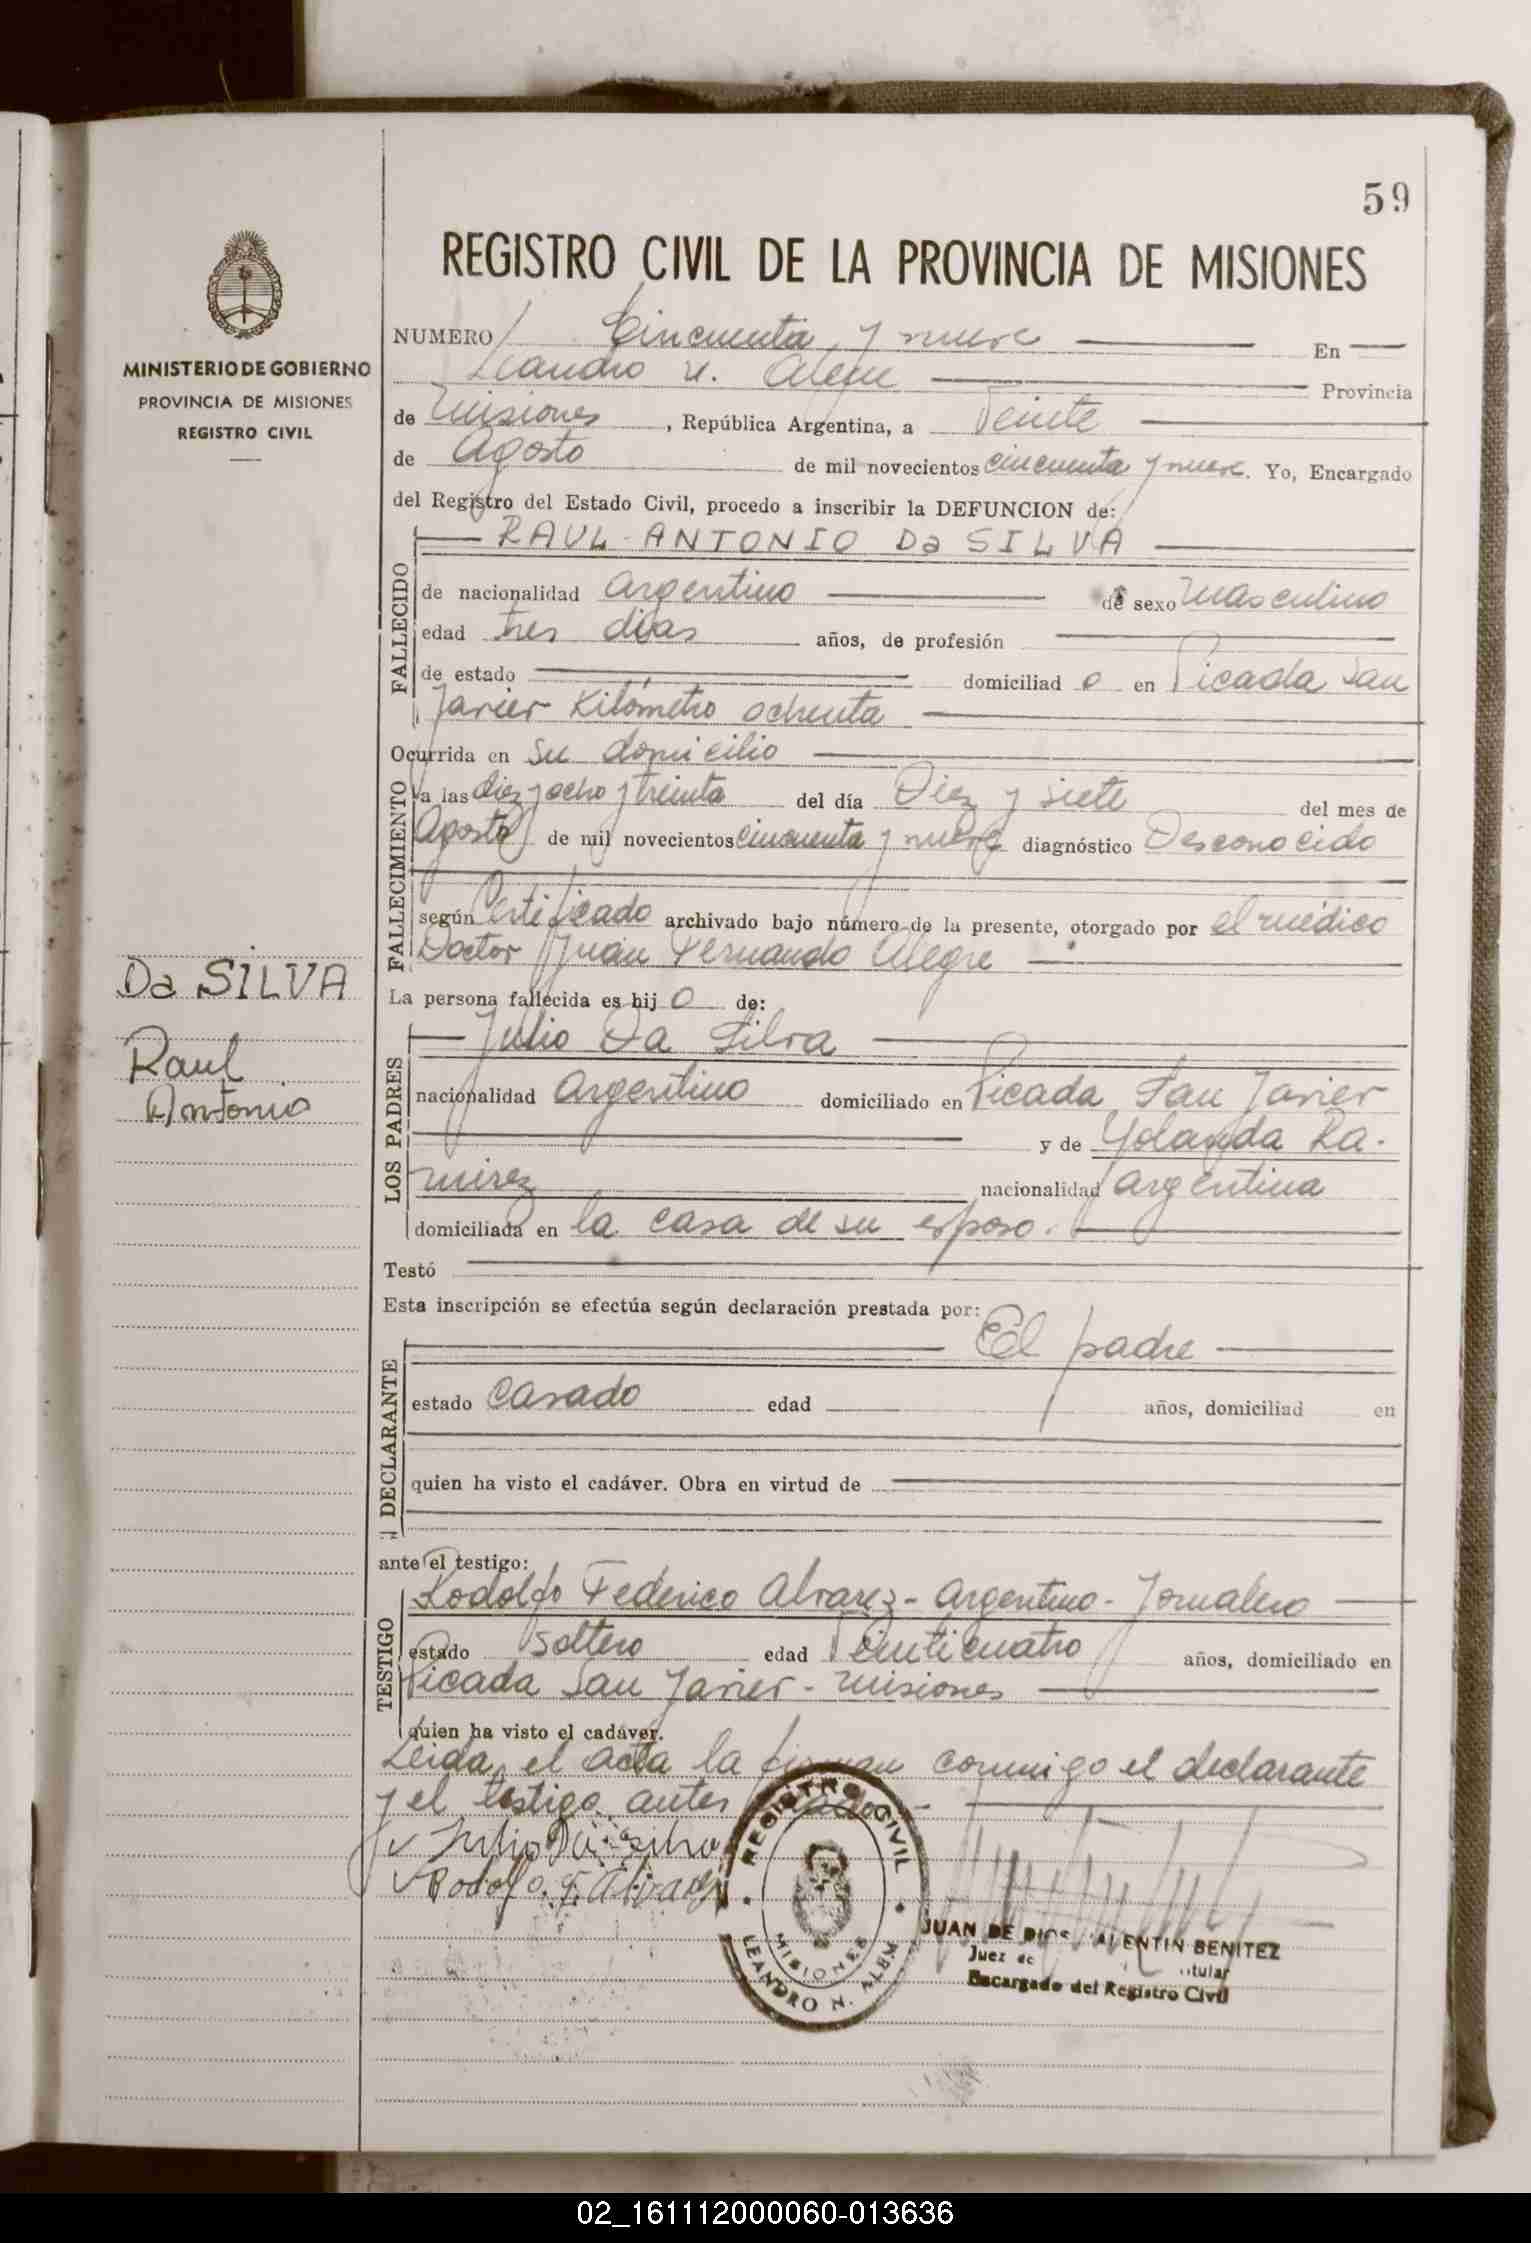 59
REGISTRO CIVIL DE LA PROVINCIA DE MISIONES
MINISTERIO DE GOBIERNO
PROVINCIA DE MISIONES
REGISTRO CIVIL
NUMERO Cincuenta y nueve En
Leandro N. Alem Provincia
de Misiones, República Argentina, a Veinte
de Agosto de mil novecientos cincuenta y nueve. Yo, Encargado
del Registro del Estado Civil, procedo a inscribir la DEFUNCION de:
FALLECIDO
RAUL ANTONIO Da SILVA
de nacionalidad Argentino de sexo Masculino
edad tres dias años, de profesión
de estado domiciliad o en Picada San
Javier Kilómetro ochenta
FALLECIMIENTO
Ocurrida en su domicilio
a las diez y ocho y treinta del día Diez y siete del mes de
Agosto de mil novecientos cincuenta y nueve diagnóstico Desconocido
según Certificado archivado bajo número de la presente, otorgado por el médico
Doctor Juan Fernando Alegre
Da SILVA
Raul
Antonio
La persona fallecida es hij o de:
LOS PADRES
Julio Da Silva
nacionalidad Argentino domiciliado en Picada San Javier
y de Yolanda Ra-
mirez nacionalidad argentina
domiciliada en la casa de su esposo.
Testó
Esta inscripción se efectúa según declaración prestada por:
DECLARANTE
El padre
estado Casado edad años, domiciliad en
quien ha visto el cadáver. Obra en virtud de
ante el testigo:
TESTIGO
Rodolfo Federico Alvarez - Argentino - Jornalero
estado Soltero edad Veinticuatro años, domiciliado en
Picada San Javier - Misiones
quien ha visto el cadáver.
Leida el acta la firman conmigo el declarante
y el testigo antes
Julio Da Silva
Rodolfo F. Alvarez
REGISTRO CIVIL
MISIONES
LEANDRO N. ALEM
JUAN DE DIOS VALENTIN BENITEZ
Juez de
Encargado del Registro Civil
02_161112000060-013636